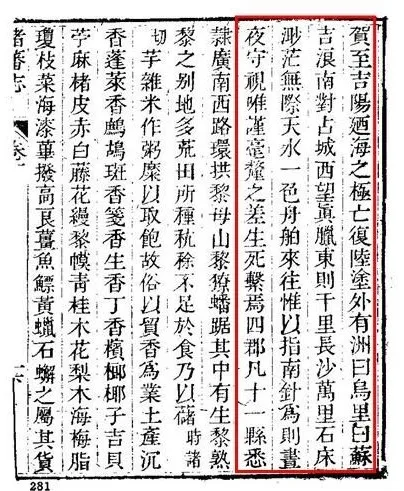 賀至吉陽廼海之極亡復陸塗外有洲曰烏里曰蘇
吉浪南對占城西望眞臘東則千里長沙萬里石床
渺茫無際天水一色舟舶來往惟以指南針為則晝
夜守視唯謹毫釐之差生死繫焉四郡凡十一縣悉
隸廣南西路環拱黎母山黎獠蟠踞其中有生黎熟
黎之別地多荒田所種秔稌不足於食乃以藷 時諸
切 芋雜米作粥糜以取飽故俗以貿香為業土產沉
香蓬萊香鷓鴣斑香箋香生香丁香檳榔椰子吉貝
苧麻楮皮赤白藤花縵黎幙青桂木花梨木海梅脂
瓊枝菜海漆蓽撥高良薑魚鰾黃蠟石蠏之屬其貨
諸蕃志
281